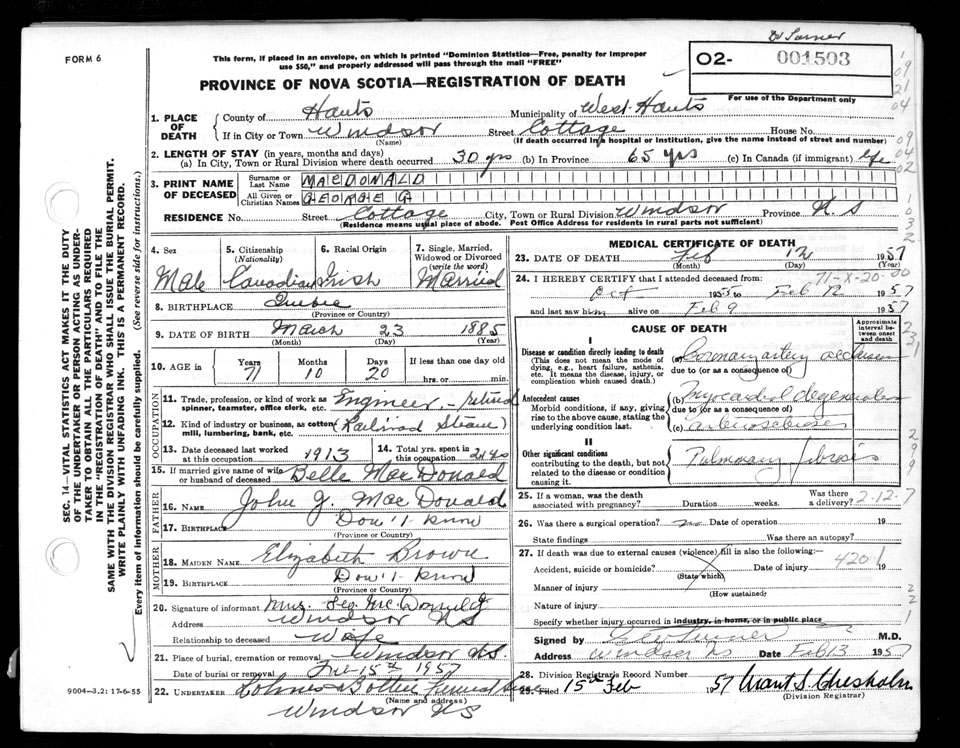 Dr Turner
FORM 6
This form, if placed in an envelope, on which is printed "Dominion Statistics—Free, penalty for improper
use $50," and properly addressed will pass through the mail "FREE"
O2- 001503
PROVINCE OF NOVA SCOTIA—REGISTRATION OF DEATH
For use of the Department only
1. PLACE OF DEATH
County of Hants Municipality of West Hants
If in City or Town Windsor Street Cottage House No.
(Name) (If death occurred in a hospital or institution, give the name instead of street and number)
2. LENGTH OF STAY (in years, months and days)
(a) In City, Town or Rural Division where death occurred 30 yrs (b) In Province 65 yrs (c) In Canada (if immigrant) life
3. PRINT NAME OF DECEASED
Surname or Last Name MACDONALD
All Given or Christian Names GEORGE G
RESIDENCE No. Street Cottage City, Town or Rural Division Windsor Province N.S
(Residence means usual place of abode. Post Office Address for residents in rural parts not sufficient)
4. Sex Male
5. Citizenship (Nationality) Canadian
6. Racial Origin Irish
7. Single, Married, Widowed or Divorced (write the word) Married
8. BIRTHPLACE Quebec
(Province or Country)
9. DATE OF BIRTH March 23 1885
(Month) (Day) (Year)
10. AGE in Years 71 Months 10 Days 20 If less than one day old hrs. or min.
OCCUPATION
11. Trade, profession, or kind of work as spinner, teamster, office clerk, etc. Engineer, - retired
12. Kind of industry or business, as cotton mill, lumbering, bank, etc. (Railroad Steam)
13. Date deceased last worked at this occupation 1913
14. Total yrs. spent in this occupation
15. If married give name of wife or husband of deceased Belle MacDonald
FATHER
16. NAME John J. MacDonald
17. BIRTHPLACE Don't know
(Province or Country)
MOTHER
18. MAIDEN NAME Elizabeth Browne
19. BIRTHPLACE Don't know
(Province or Country)
20. Signature of informant Mrs. Geo. McDonald
Address Windsor NS
Relationship to deceased Wife
21. Place of burial, cremation or removal Windsor NS.
Date of burial or removal Feb 15th 1957
22. UNDERTAKER Funeral
(Name and address)
Windsor NS
9004-3.2: 17-6-55
MEDICAL CERTIFICATE OF DEATH
23. DATE OF DEATH Feb 12 1957
(Month) (Day)
71-X-20-00
24. I HEREBY CERTIFY that I attended deceased from:
Oct 1955 to Feb 12 1957
and last saw him alive on Feb 9 1957
CAUSE OF DEATH
Approximate interval between onset and death
I
Disease or condition directly leading to death
(This does not mean the mode of dying, e.g., heart failure, asthenia, etc. It means the disease, injury, or complication which caused death.)
(a) Coronary artery occlusion
due to (or as a consequence of)
Antecedent causes
Morbid conditions, if any, giving rise to the above cause, stating the underlying condition last.
(b) Myocardial degeneration
due to (or as a consequence of)
(c) arteriosclerosis
II
Other significant conditions
contributing to the death, but not related to the disease or condition causing it.
Pulmonary fibrosis
25. If a woman, was the death associated with pregnancy? Duration weeks. Was there a delivery? 2-12-7
26. Was there a surgical operation? no Date of operation 19
State findings Was there an autopsy?
27. If death was due to external causes (violence) fill in also the following:
Accident, suicide or homicide? Date of injury 19
(State which) 4201
Manner of injury
(How sustained)
Nature of injury
Specify whether injury occurred in industry, in home, or in public place
Signed by M.D.
Address Windsor NS Date Feb 13 1957
28. Division Registrar's Record Number
29. Filed 15th Feb 1957 Grant S. Chisholm
(Division Registrar)
SEC. 14—VITAL STATISTICS ACT MAKES IT THE DUTY
OF THE UNDERTAKER OR PERSON ACTING AS UNDER-
TAKER TO OBTAIN ALL THE PARTICULARS REQUIRED
IN THE "REGISTRATION OF DEATH" AND TO FILE THE
SAME WITH THE DIVISION REGISTRAR WHO SHALL ISSUE THE BURIAL PERMIT.
WRITE PLAINLY WITH UNFADING INK. THIS IS A PERMANENT RECORD.
Every item of information should be carefully supplied. (See reverse side for instructions.)